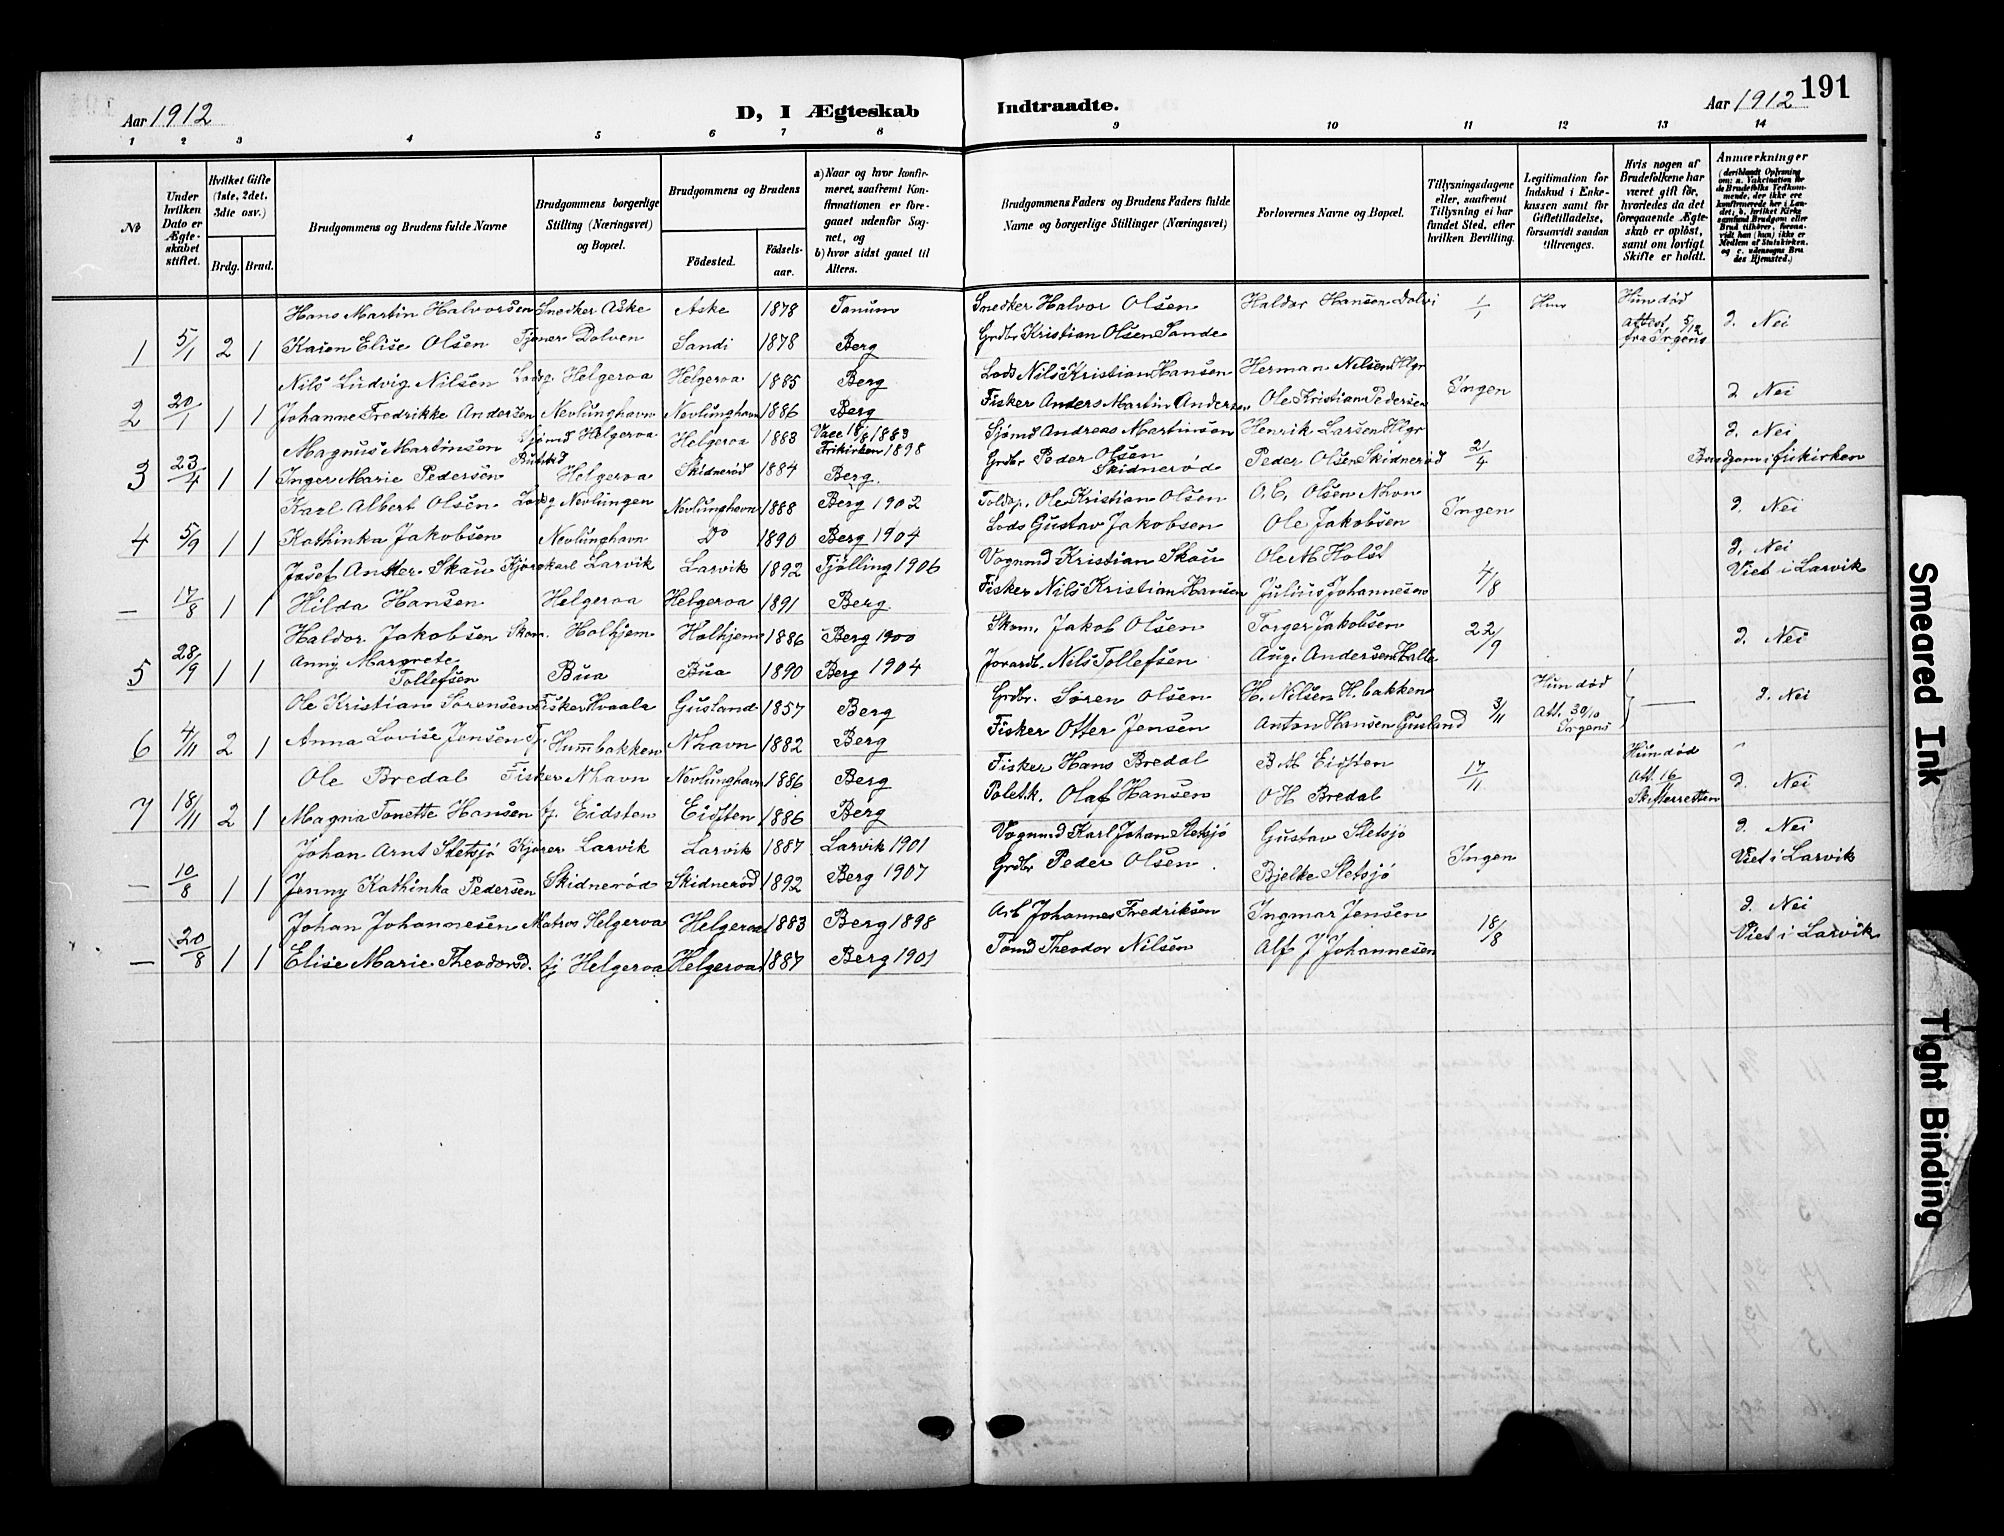 191
Aar 1912
D, I Ægteskab
Indtraadte.
Aar 1912
1 2 3 4 5 6 7 8 9 10 11 12 13 14
No
Under hvilken Dato er Ægteskabet stiftet.
Hvilket Gifte (1ste, 2det, 3die osv.)
Brdg. Brud.
Brudgommens og Brudens fulde Navne
Brudgommens borgerlige Stilling (Næringsvei) og Bopæl.
Brudgommens og Brudens
Födested.
Födselsaar.
a) Naar og hvor konfirmeret, saafremt Konfirmationen er foregaaet udenfor Sognet, og
b) hvor sidst gaaet til Alters.
Brudgommens Faders og Brudens Faders fulde Navne og borgerlige Stillinger (Næringsvei)
Forlovernes Navne og Bopæl.
Tillysningsdagene eller, saafremt Tillysning ei har fundet Sted, efter hvilken Bevilling.
Legitimation for Indskud i Enkekassen samt for Giftetilladelse, forsaavidt saadan tiltrænges.
Hvis nogen af Brudefolkene har været gift för, hvorledes da det foregaaende Ægteskab er oplöst, samt om lovligt Skifte er holdt.
Anmærkninger
(deriblandt Oplysning om: a. Vaccination for de Brudefolks Vedkommende, der ikke ere konfirmerede her i Landet; b. hvilket Kirkesamfund Brudgom eller Brud tilhörer, forsaavidt han (hun) ikke er Medlem af Statskirken, og c. udensogns Brudes Hjemsted.)
Hans Martin Halvorsen Snedker Aske Aske 1878 Tanum Snedker Halvor Olsen Haldor Hansen Dolvi 1/1 Hun død
1 5/1 2 1 Karen Elise Olsen Tjener Dolven Sandi 1878 Berg Grdbr Kristian Olsen Sande Attest 5/12 fra Irgens d. Nei
Nils Ludvig Nilsen Helgeroa Helgeroa 1885 Berg Lods Nils Kristian Hansen Herman Nilsen Hlgr Ingen
2 20/1 1 1 Johanne Fredrikke Andersen Nevlunghavn Nevlunghavn 1886 Berg Fisker Anders Martin Andersen Ole Kristian Pedersen d Nei
Magnus Martinsen Sjømd Helgeroa Helgeroa 1883 Vacc 18/8 1883 Frikirken 1898 Sjømd Andreas Martinsen Henrik Larsen Hlgr d. Nei
3 23/4 1 1 Inger Marie Pedersen Helgeroa Skidnerød 1884 Berg. Grdbr Peder Olsen Skidnerød Peder Olsen Skidnerød 2/4 Brudgom i frikirken
Karl Albert Olsen Nevlungen Nevlunghavn 1888 Berg 1902 Toldop. Ole Kristian Olsen O. C. Olsen Nhvn Ingen d. Nei
4 5/9 1 1 Kathinka Jakobsen Nevlunghavn Do 1890 Berg 1904 Lods Gustav Jakobsen Ole Jakobsen
Josef Anker Skau Kjørekarl Larvik Larvik 1892 Tjølling 1906 Vognmd Kristian Skau Ole M Holst d. Nei
— 17/8 1 1 Hilda Hansen Helgeroa Helgeroa 1891 Berg. Fisker Nils Kristian Hansen Julius Johannesen 4/8 Viet i Larvik
Haldor Jakobsen Skom. Holhjem Holhjem 1886 Berg 1900 Skom. Jakob Olsen Torger Jakobsen 22/9 d. Nei
5 28/9 1 1 Anny Margrete Tollefsen Bua Bua 1890 Berg 1904 Nils Tollefsen Aug. Andersen Halle
Ole Kristian Sørensen Fisker Hvaale Gusland 1857 Berg Grdbr. Søren Olsen H. Nilsen H. bakken 3/11 Hun død — d. Nei
6 4/11 2 1 Anna Lovise Jensen Tj. Humbakken Nhavn 1882 Berg Fisker Otter Jensen Anton Hansen Gusland Att. 30/10 Irgens
Ole Bredal Fisker Nhavn Nevlunghavn 1886 Berg Fisker Hans Bredal B M Eidsten 17/11 Hun død
7 18/11 2 1 Magna Tonette Hansen tj. Eidsten Eidsten 1886 Berg Olaf Hansen O H Bredal Att. 16 Skifteretten d. Nei
Johan Arnt Sletsjø Kjører Larvik Larvik 1887 Larvik 1901 Vognmd Karl Johan Sletsjø Gustav Sletsjø Ingen d. Nei
— 10/8 1 1 Jenny Kathinka Pedersen Skidnerød Skidnerød 1892 Berg 1907 Grdbr Peder Olsen Bjelke Sletsjø Viet i Larvik
Johan Johannesen Matros Helgeroa Helgeroa 1883 Berg 1898 Arb Johannes Fredriksen Ingmar Jensen 18/8 d. Nei
— 20/8 1 1 Elise Marie Theodorsd. tj Helgeroa Helgeroa 1887 Berg 1901 Tømd Theodor Nilsen Alf J Johannesen Viet i Larvik
Smeared Ink
Tight Binding